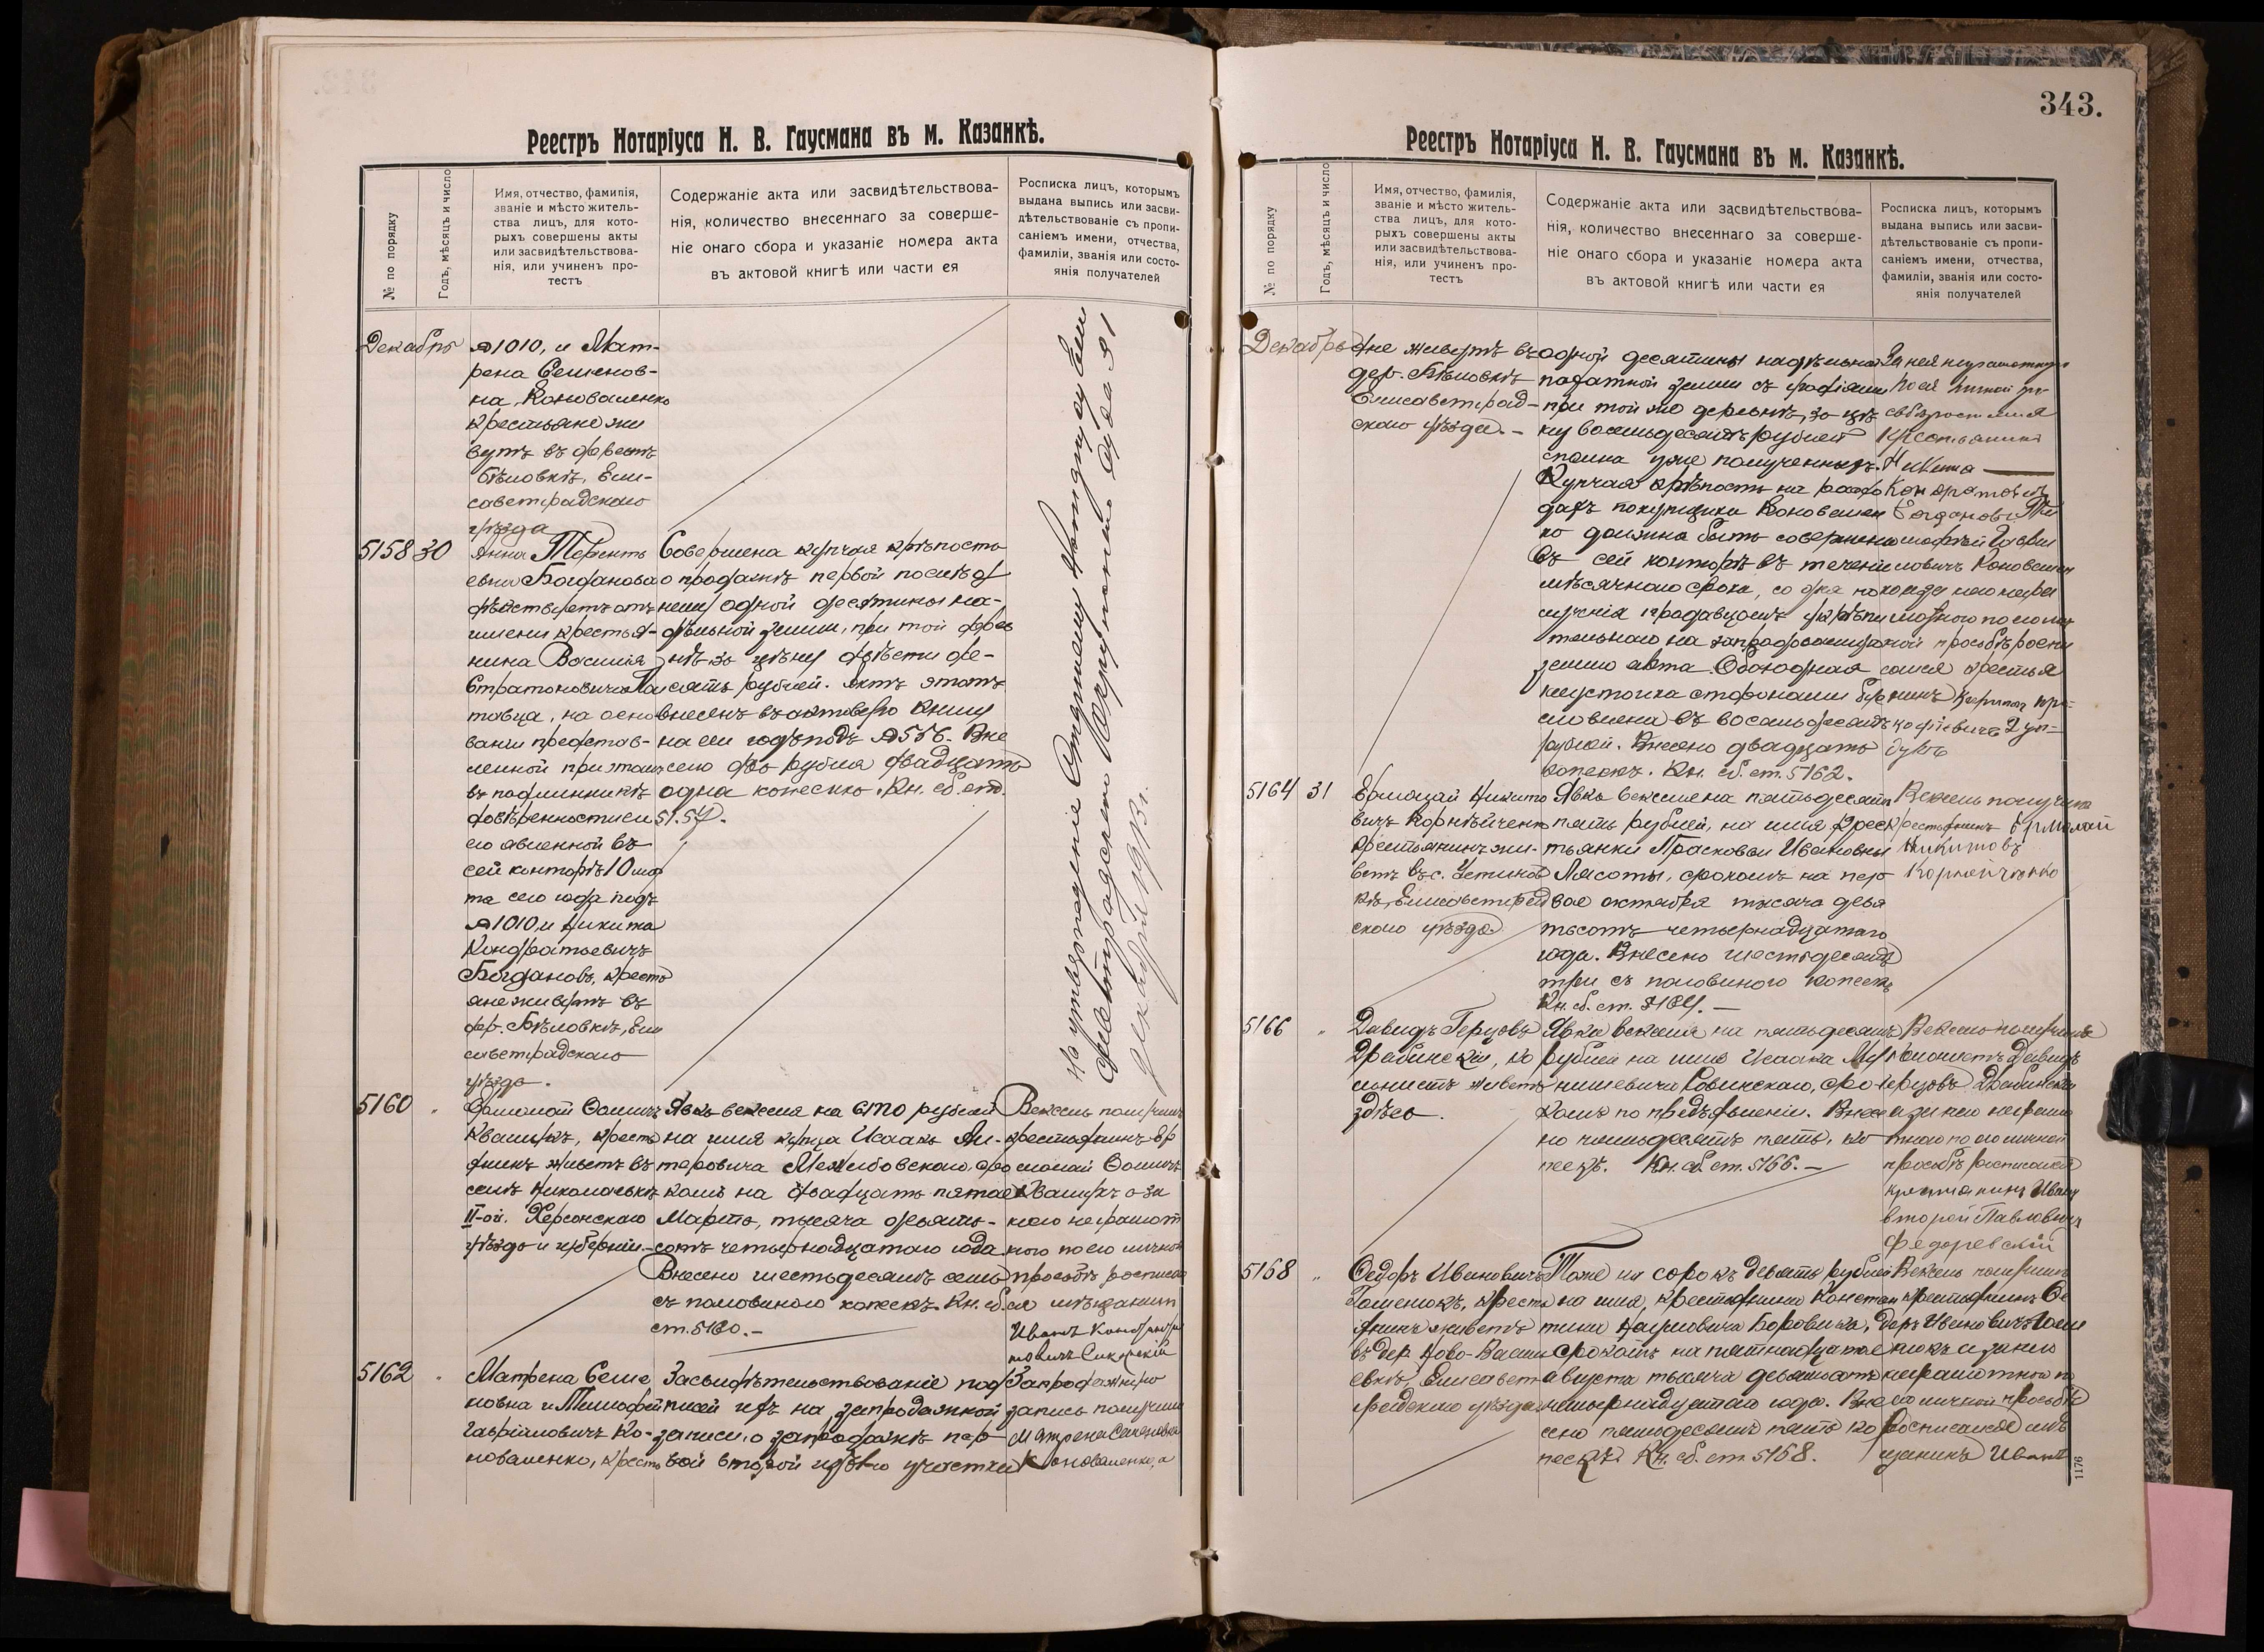 Реестръ Нотаріуса Н. В. Гаусмана въ м. Казанкѣ.
№ по порядку
Годъ, мѣсяцъ и число
Имя, отчество, фамилія,
званіе и мѣсто житель-
ства лицъ, для кото-
рыхъ совершены акты
или засвидѣтельствова-
нія, или учиненъ про-
тестъ
Содержаніе акта или засвидѣтельствова-
нія, количество внесеннаго за соверше-
ніе онаго сбора и указаніе номера акта
въ актовой книгѣ или части ея
Росписка лицъ, которымъ
выдана выпись или засви-
дѣтельствованіе съ пропи-
саніемъ имени, отчества,
фамиліи, званія или состо-
янія получателей
Декабрь
№1010, и Мат-
рена Семенов-
на Коноваленко
крестьяне жи
вутъ въ
Бѣловкѣ, Ели-
саветградскаго
уѣзда
5158 30
Анна Терентъ
евна Богданова
дѣйствуетъ отъ
имени крестья-
нина Василія
Стратоновича
тавца, на осно
ваніи представ-
ленной при этомъ
въ подлинникѣ
довѣренности
его явленной въ
сей конторѣ 10 мар
та сего года подъ
№1010, и Никита
Кондратьевичъ
Богдановъ, кресть
яне живутъ въ
дер. Бѣловкѣ, Ели
саветградскаго
уѣзда.
Совершена купчая крѣпость
о продажѣ первой послѣд
нему одной десятины на-
дѣльной земли, при той дерев
нѣ за цѣну двѣсти де-
сять рублей. Актъ этотъ
внесенъ въ актовую книгу
на сей годъ подъ №556. Вне
сено два рубля двадцать
одна копейка. Кн. сб. ст.
5157.
На утвержденіе
Елисаветградскаго Окружного Суда 31
декабря 1913 г.
5160 "
Ермолай Фомичъ
Квашукъ, кресть
янинъ живетъ въ
селѣ Николаевкѣ
II-ой, Херсонскаго
уѣзда и губерніи.
Явка векселя на сто рублей
на имя купца Исаака Ли-
теровича Межибовскаго, сро
комъ на двадцать пятое
Марта, тысяча девять-
сотъ четырнадцатаго года
Внесено шестьдесятъ семь
съ половиною копеекъ. Кн. сб.
ст. 5160.-
Вексель получилъ
крестьянинъ Ер
молай Фомичъ
Квашукъ а за
него неграмот
наго по его личной
просьбѣ росписал
ся мѣщанинъ
Иванъ Кондра
товичъ Сикорскій
5162 "
Матрена Семе
новна и Тимофей
Гавріиловичъ Ко-
новаленко, кресть
Засвидѣтельствованіе под
писей ихъ на запродажной
записи, о запродажѣ пер
вой второй изъ его участка
Запродажную
запись получили
Матрена Семеновна
Коноваленко, а
343.
Реестръ Нотаріуса Н. В. Гаусмана въ м. Казанкѣ.
№ по порядку
Годъ, мѣсяцъ и число
Имя, отчество, фамилія,
званіе и мѣсто житель-
ства лицъ, для кото-
рыхъ совершены акты
или засвидѣтельствова-
нія, или учиненъ про-
тестъ
Содержаніе акта или засвидѣтельствова-
нія, количество внесеннаго за соверше-
ніе онаго сбора и указаніе номера акта
въ актовой книгѣ или части ея
Росписка лицъ, которымъ
выдана выпись или засви-
дѣтельствованіе съ пропи-
саніемъ имени, отчества,
фамиліи, званія или состо-
янія получателей
Декабрь
яне живутъ въ
дер. Бѣловкѣ
Елисаветград-
скаго уѣзда.-
одной десятины надѣльной
пахатной земли съ
при той же деревнѣ, за цѣ
ну восемьдесятъ рублей
сполна уже полученныхъ.
Купчая крѣпость на расхо
дахъ покупщика Коновален
ко должна быть совершена
въ сей конторѣ въ теченіи
мѣсячнаго срока, со дня по
лученія продавцомъ укрѣпи
тельнаго на запродаваемую
землю акта. Обоюдная
неустойка сторонами
словлена въ восемьдесятъ
рублей. Внесено двадцать
копеекъ. Кн. сб. ст. 5162.
За нея неграмотную
по ея личной
росписался
крестьянинъ
Никита
Кондратовичъ
Богдановъ, Ти
мофѣй Гаври
ловичъ Коновален
ко а за него негра
мотнаго по его лич
ной просьбѣ роспи
сался крестья
нинъ
5164 31
Ермолай Никито
вичъ Корнѣйченко
крестьянинъ жи-
ветъ въ с. Устинов
кѣ, Елисаветград
скаго уѣзда
Явка векселя на пятьдесятъ
пять рублей, на имя крес
тьянки Прасковьи Ивановны
Лясоты, срокомъ на пер
вое октября тысяча девя
тьсотъ четырнадцатаго
года. Внесено шестьдесятъ
три съ половиною копеекъ
Кн. сб. ст. 5164.-
Вексель получилъ
крестьянинъ Ермолай
Никитовъ
Корнейченко
5166 "
Давидъ Герцовъ
Драбинскій, ко
лонистъ живетъ
здѣсь.
Явка векселя на пятьдесятъ
рублей на имя Исаака
нишевича Ровинскаго, сро
комъ по предъявленіи. Внесе
но пятьдесятъ пять, ко
пеекъ. Кн. сб. ст. 5166.-
Вексель получилъ
колонистъ Давидъ
Герцовъ Драбинскій
а за него неграмо
тнаго по его личной
просьбѣ росписался
крестьянинъ Иванъ
второй Павловичъ
Федоревскій
5168 "
Федоръ Ивановичъ
Гоменюкъ, кресть
янинъ живетъ
въ дер. Ново-Васил
евкѣ, Елисавет
градскаго уѣзда
Тоже на сорокъ девять рублей
на имя, крестьянина Констан
тина Наумовича Боровика,
срокомъ на пятнадцатое
августа тысяча девятьсотъ
четырнадцатаго года. Вне
сено пятьдесятъ пять ко
пеекъ. Кн. сб. ст. 5168.
Вексель получилъ
крестьянинъ Фе
доръ Ивановичъ Гоме
нюкъ а за него
неграмотнаго по
его личной просьбѣ
росписался мѣ
щанинъ Иванъ
1176